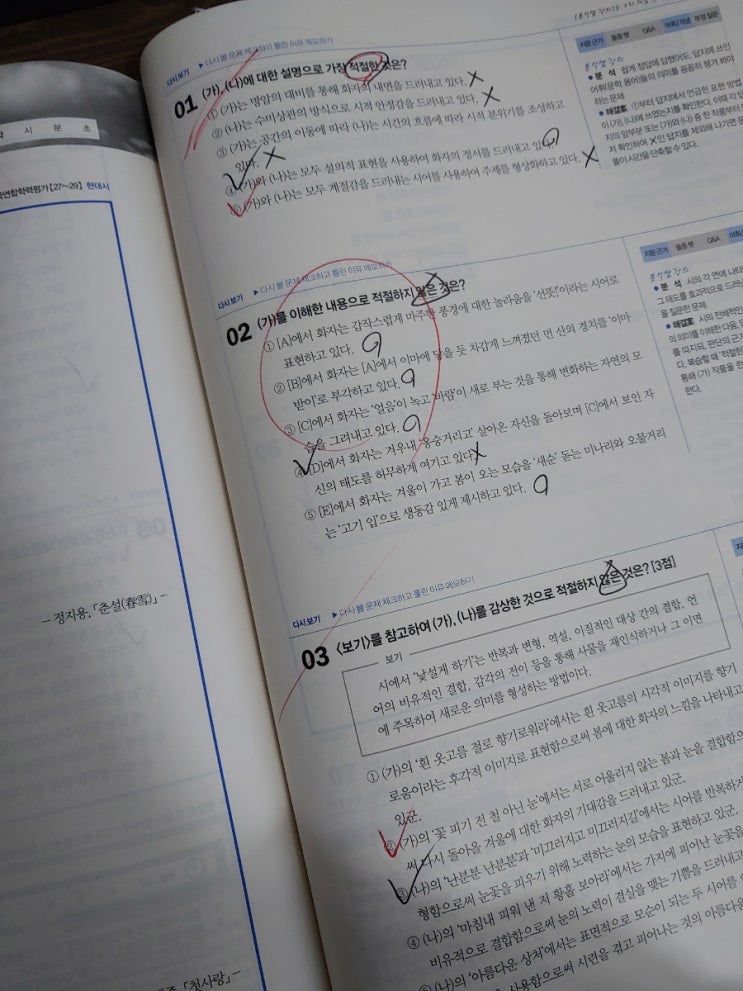 시 분 초
연합학력평가 [27~29] 현대시
- 정지용, 「춘설(春雪)」 -
「첫사랑」 -
다시보기 ▶ 다시 볼 문제 체크하고 틀린 이유 메모하기
01 (가), (나)에 대한 설명으로 가장 적절한 것은?
① (가)는 명암의 대비를 통해 화자의 내면을 드러내고 있다. X
② (나)는 수미상관의 방식으로 시적 안정감을 드러내고 있다. X
③ (가)는 공간의 이동에 따라 (나)는 시간의 흐름에 따라 시적 분위기를 조성하고
있다. X
④ (가)와 (나)는 모두 설의적 표현을 사용하여 화자의 정서를 드러내고 있다.
⑤ (가)와 (나)는 모두 계절감을 드러내는 시어를 사용하여 주제를 형상화하고 있다. X
지문 근거 둘중 헷 Q&A 어휘/개념 부정 질문
분석쌤 강의
● 분 석 쉽게 정답에 답했어도, 답지에 쓰인
어휘(문학 용어)들의 의미를 꼼꼼히 챙겨 봐야
하는 문제
● 해결案 ①부터 답지에서 언급한 표현 방법
이 (가), (나)에 쓰였는지를 확인한다. 이때 각 답
지의 앞부분 또는 (가)와 (나) 중 한 작품부터
저 확인하여 X인 답지를 제외해 나가면 문
풀이 시간을 단축할 수 있다.
다시보기 ▶ 다시 볼 문제 체크하고 틀린 이유 메모하기
02 (가)를 이해한 내용으로 적절하지 않은 것은?
① [A]에서 화자는 갑작스럽게 마주한 풍경에 대한 놀라움을 '선뜻!'이라는 시어로
표현하고 있다.
② [B]에서 화자는 [A]에서 이마에 닿을 듯 차갑게 느껴졌던 먼 산의 경치를 '이마
받이'로 부각하고 있다.
③ [C]에서 화자는 '얼음'이 녹고 '바람'이 새로 부는 것을 통해 변화하는 자연의 모
습을 그려내고 있다.
④ [D]에서 화자는 겨우내 '옹숭거리고' 살아온 자신을 돌아보며 [C]에서 보인 자
신의 태도를 허무하게 여기고 있다. X
⑤ [E]에서 화자는 겨울이 가고 봄이 오는 모습을 '새순' 돋는 미나리와 오물거리
는 '고기 입'으로 생동감 있게 제시하고 있다.
지문 근거 둘중 헷 Q&A 어휘
분석쌤 강의
● 분 석 시의 각 연에 나타
그 태도를 효과적으로 드러
을 질문한 문제
● 해결案 시의 전체적인
의 의미를 이해한 다음,
를 따지되, 판단의 근거
다. 복습할 때 '적절한
통해 (가) 작품을 한
한다.
다시보기 ▶ 다시 볼 문제 체크하고 틀린 이유 메모하기
03 <보기>를 참고하여 (가), (나)를 감상한 것으로 적절하지 않은 것은? [3점]
보기
시에서 '낯설게 하기'는 반복과 변형, 역설, 이질적인 대상 간의 결합, 언
어의 비유적인 결합, 감각의 전이 등을 통해 사물을 재인식하거나 그 이면
에 주목하여 새로운 의미를 형성하는 방법이다.
① (가)의 '흰 옷고름 절로 향기로워라'에서는 흰 옷고름의 시각적 이미지를 향기
로움이라는 후각적 이미지로 표현함으로써 봄에 대한 화자의 느낌을 나타내고
있군.
② (가)의 '꽃 피기 전 철 아닌 눈'에서는 서로 어울리지 않는 봄과 눈을 결합함으
써 다시 돌아올 겨울에 대한 화자의 기대감을 드러내고 있군.
③ (나)의 '난분분 난분분'과 '미끄러지고 미끄러지길'에서는 시어를 반복하
형함으로써 눈꽃을 피우기 위해 노력하는 눈의 모습을 표현하고 있군.
④ (나)의 '마침내 피워 낸 저 황홀 보아라'에서는 가지에 피어난 눈꽃을
비유적으로 결합함으로써 눈의 노력이 결실을 맺는 기쁨을 드러내고
⑤ (나)의 '아름다운 상처'에서는 표면적으로 모순이 되는 두 시어를
사용함으로써 시련을 겪고 피어나는 것의 아름다움